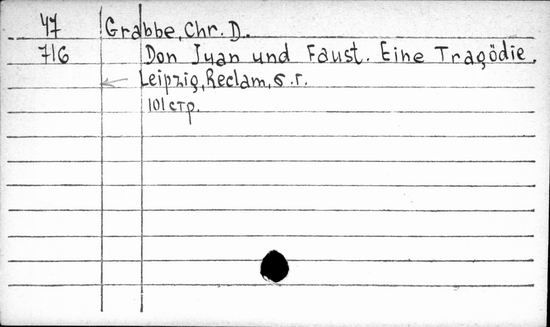 47 Grabbe, Chr. D.
716 Don Juan und Faust. Eine Tragödie.
Leipzig, Reclam, б.г.
101 стр.